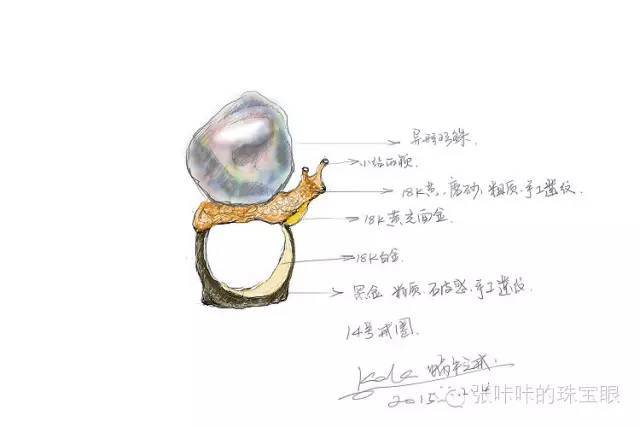 异形珍珠.
小钻两颗
18K黄.磨砂.粗质.手工凿纹
18K黄光面金.
18K白金.
黑金 粗质.石皮感.手工凿纹
14号戒圈.
蜗牛之戒.
2015
张咔咔的珠宝眼